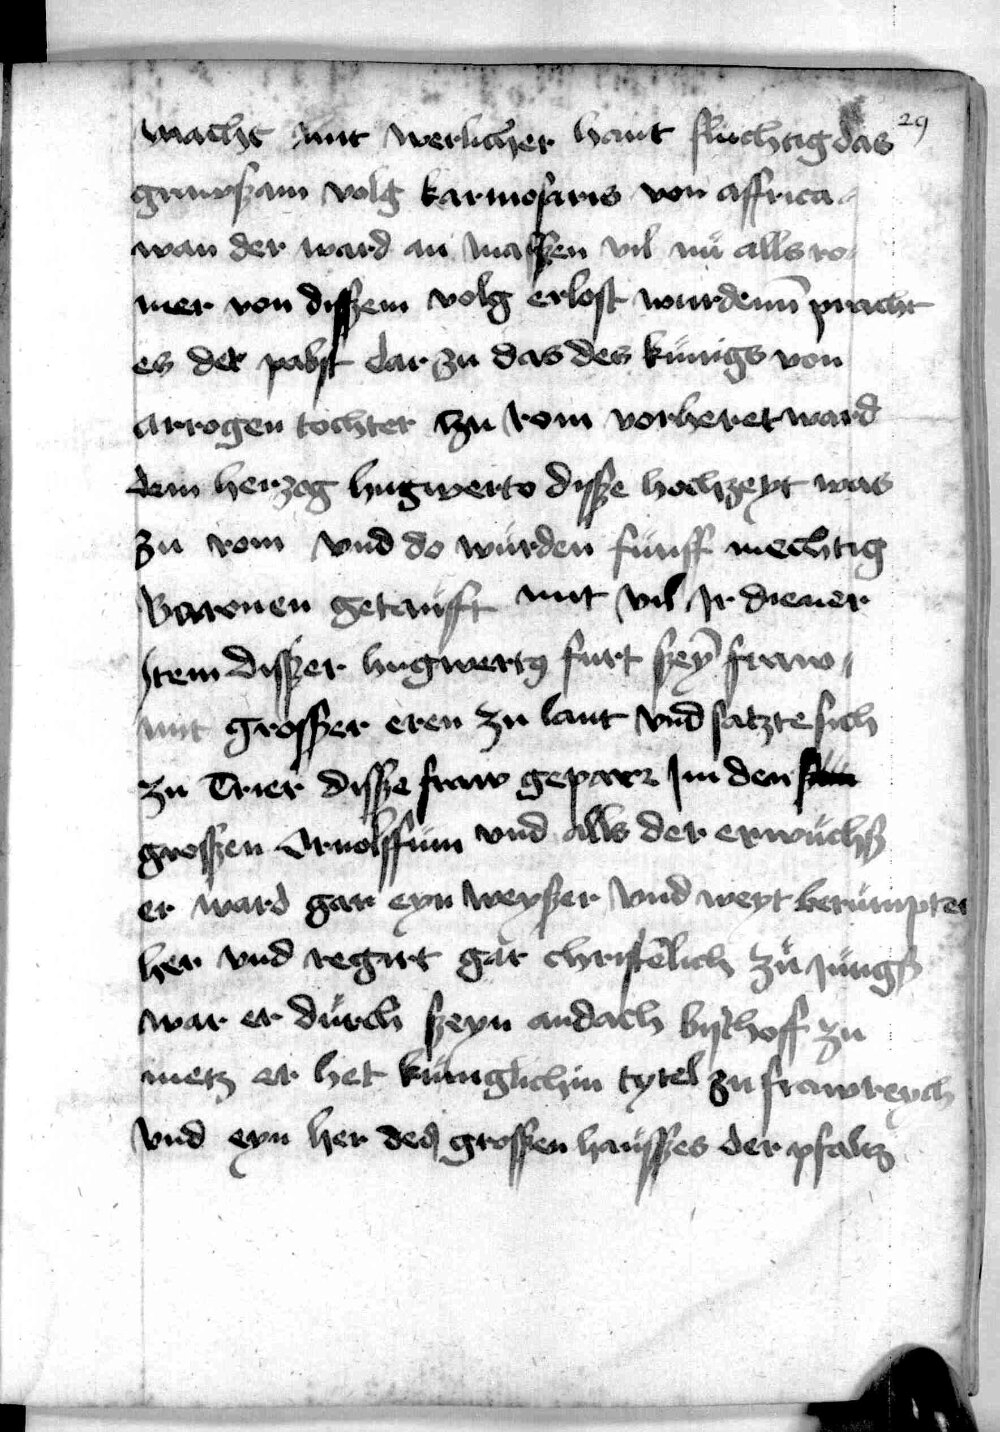 29
macht mit werlicher hant fluchtig das
grawszam volg karmosaris von affrica
wan der ward an maszen vil nü alls ro
mer von diszem volg erlost wurdenn pracht
es der pabst dar zu das des künigs von
arrogen tochter zu rom vorheret ward
dem herzog hugwerto disze hochzeyt was
zu rom vnd do würden fünff mechtig
Baronen getaüfft mit vil ir diener
Item diszer hugwert9 furt szeȳ fraw
mit grosser eren zu lant vnd satzte sich
zu Trier disze fraw geparr im den
groszen Arnolffum vnd alls der erwüchsz
er ward gar eyn weyszer vnd weyt berümpter
her vnd regirt gar christēlich zü jüngsz
war er dürch szeyn andach bischoff zu
metz er het künglichin tytel zu frawreych
vnd eyn her des grossen haüszes der pfaltz